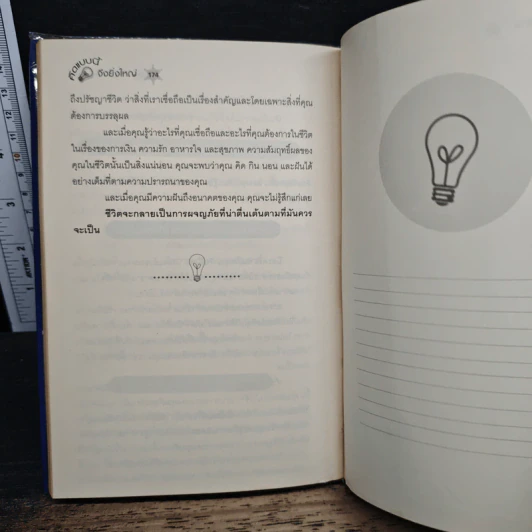 คิดแบบนี้
จึงยิ่งใหญ่ 174
ถึงปรัชญาชีวิต ว่าสิ่งที่เราเชื่อถือเป็นเรื่องสำคัญและโดยเฉพาะสิ่งที่คุณ
ต้องการบรรลุผล
และเมื่อคุณรู้ว่าอะไรที่คุณเชื่อถือและอะไรที่คุณต้องการในชีวิต
ในเรื่องของการเงิน ความรัก อาหารใจ และสุขภาพ ความสัมฤทธิ์ผลของ
คุณในชีวิตนั้นเป็นสิ่งแน่นอน คุณจะพบว่าคุณ คิด กิน นอน และฝันได้
อย่างเต็มที่ตามความปรารถนาของคุณ
และเมื่อคุณมีความฝันถึงอนาคตของคุณ คุณจะไม่รู้สึกแก่เลย
ชีวิตจะกลายเป็นการผจญภัยที่น่าตื่นเต้นตามที่มันควร
จะเป็น
1
2
3